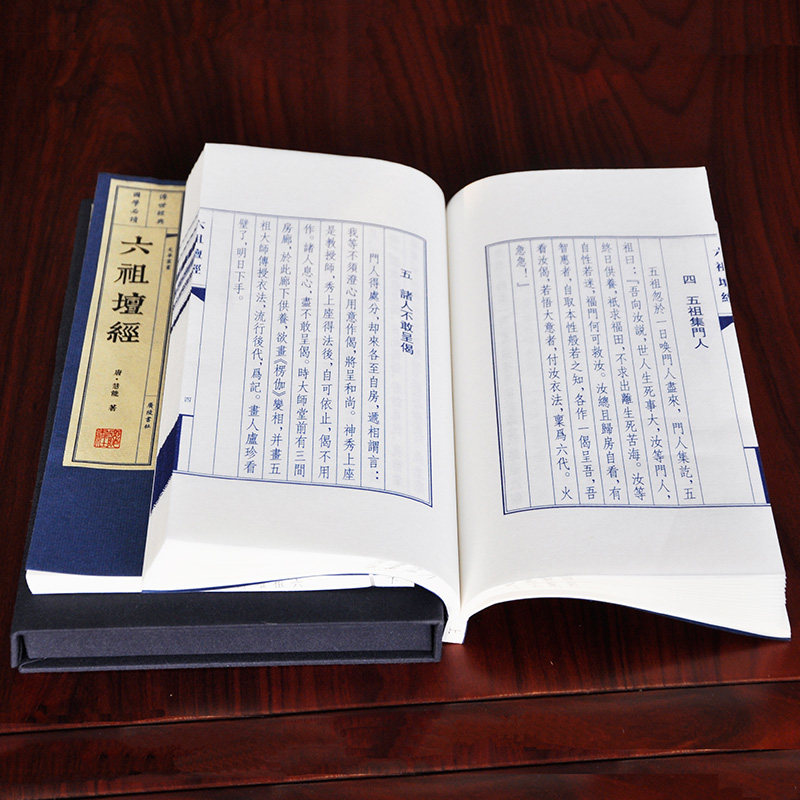 六祖壇經
四 五祖集門人
五祖忽於一日喚門人盡來，門人集訖，五
祖曰：『吾向汝説，世人生死事大，汝等門人，
終日供養，衹求福田，不求出離生死苦海。汝等
自性若迷，福門何可救汝。汝總且歸房自看，有
智惠者，自取本性般若之知，各作一偈呈吾，吾
看汝偈，若悟大意者，付汝衣法，稟爲六代。火
急急！』
五 諸人不敢呈偈
門人得處分，却來各至自房，遞相謂言：
我等不須澄心用意作偈，將呈和尚。神秀上座
是教授師，秀上座得法後，自可依止，偈不用
作。諸人息心，盡不敢呈偈。時大師堂前有三間
房廊，於此廊下供養，欲畫《楞伽》變相，并畫五
祖大師傳授衣法，流行後代，爲記。畫人盧珍看
壁了，明日下手。
六祖壇經
四
傳世經典
國學必讀
文華叢書
六祖壇經
唐·慧能 著
廣陵書社